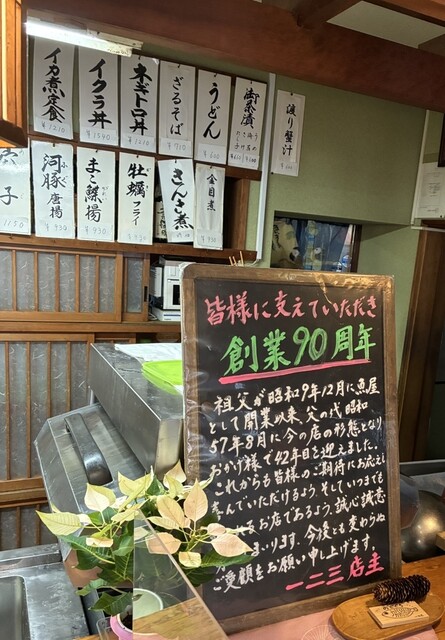 イカ煮定食
¥1210
イクラ丼
¥1540
ネギトロ丼
¥1210
ざるそば
¥710
うどん
御茶漬
渡り蟹汁
穴子
1150
河豚唐揚
¥930
まこ鰈揚
牡蠣フライ
きんき煮
金目煮
皆様に支えていただき
創業90周年
祖父が昭和9年12月に魚屋
として開業以来、父の代昭和
57年8月に今の店の形態となり
おかげ様で42年目を迎えました。
これからも皆様のご期待にお応えし
喜んでいただけるよう、そしていつまでも
あるお店であるよう、誠心誠意
まいります。今後とも変わらぬ
ご愛顧をお願い申し上げます。
一二三店主